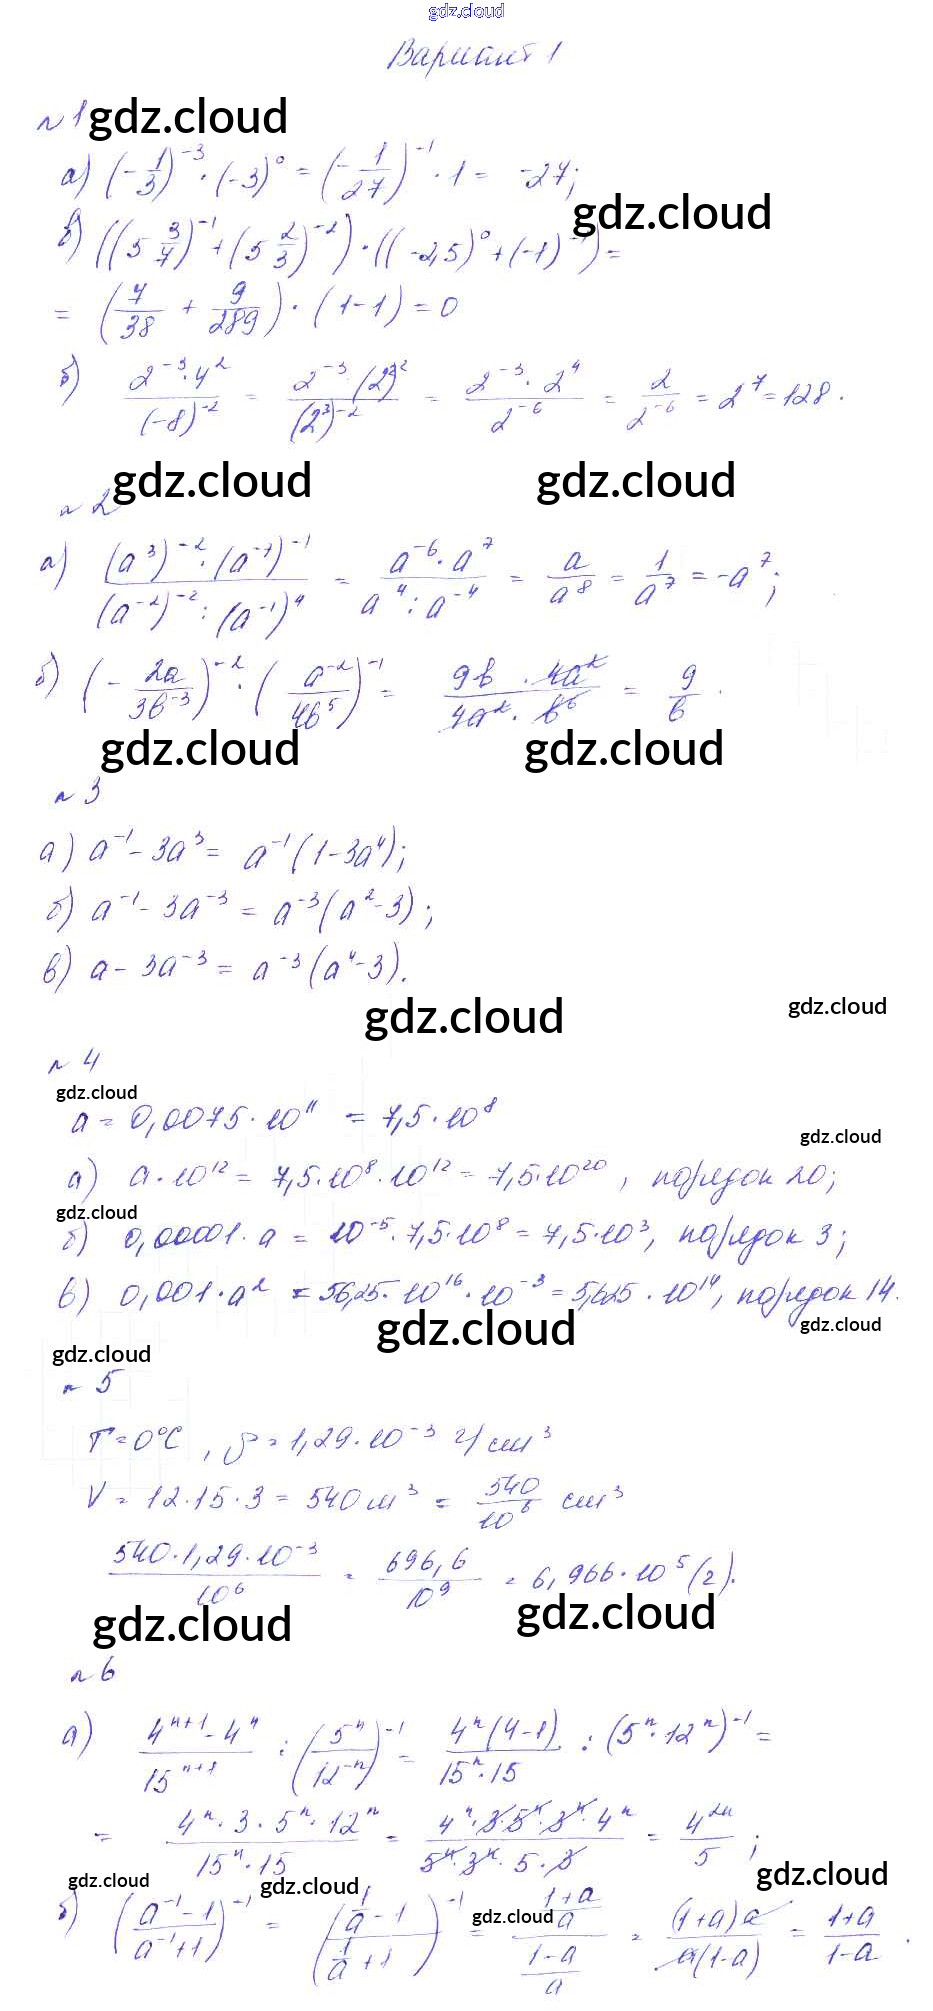 gdz.cloud
Вариант 1
№ 1 gdz.cloud
а) (-1/3)^-3 · (-3)^0 = (-1/27)^-1 · 1 = -27;
gdz.cloud
в) ((5 3/7)^-1 + (5 2/3)^-2) · ((-2,5)^0 + (-1)^-1) =
= (7/38 + 9/289) · (1-1) = 0
б) 2^-3 · 4^2 / (-8)^-2 = 2^-3 · (2^2)^2 / (2^3)^-2 = 2^-3 · 2^4 / 2^-6 = 2 / 2^-6 = 2^7 = 128.
gdz.cloud gdz.cloud
№ 2
а) (a^3)^-2 · (a^-7)^-1 / (a^-2)^-2 : (a^-1)^4 = a^-6 · a^7 / a^4 : a^-4 = a / a^8 = 1 / a^7 = -a^7;
б) (-2a / 3b^-3)^-2 · (a^-2 / 4b^5)^-1 = 9b · 4a^2 / 4a^2 · b^6 = 9 / b.
gdz.cloud gdz.cloud
№ 3
а) a^-1 - 3a^3 = a^-1 (1-3a^4);
б) a^-1 - 3a^-3 = a^-3 (a^2-3);
в) a - 3a^-3 = a^-3 (a^4-3).
gdz.cloud gdz.cloud
№ 4
gdz.cloud
a = 0,0075 · 10^11 = 7,5 · 10^8
gdz.cloud
а) a · 10^12 = 7,5 · 10^8 · 10^12 = 7,5 · 10^20, порядок 20;
gdz.cloud
б) 0,00001 · a = 10^-5 · 7,5 · 10^8 = 7,5 · 10^3, порядок 3;
в) 0,001 · a^2 = 56,25 · 10^16 · 10^-3 = 5,625 · 10^14, порядок 14.
gdz.cloud gdz.cloud
gdz.cloud
№ 5
T = 0°C, ρ = 1,29 · 10^-3 г/см^3
V = 12 · 15 · 3 = 540 м^3 = 540 / 10^6 см^3
540 · 1,29 · 10^-3 / 10^6 = 696,6 / 10^9 = 6,966 · 10^5 (г).
gdz.cloud gdz.cloud
№ 6
а) 4^n+1 - 4^n / 15^n+1 : (5^n / 12^-n)^-1 = 4^n (4-1) / 15^n · 15 : (5^n · 12^n)^-1 =
= 4^n · 3 · 5^n · 12^n / 15^n · 15 = 4^n · 3 · 5^n · 3^n · 4^n / 5^n · 3^n · 5 · 3 = 4^2n / 5;
gdz.cloud gdz.cloud gdz.cloud
б) (a^-1 - 1 / a^-1 + 1)^-1 = (1/a - 1 / 1/a + 1)^-1 = 1+a/a / 1-a/a = (1+a) a / a (1-a) = 1+a / 1-a.
gdz.cloud